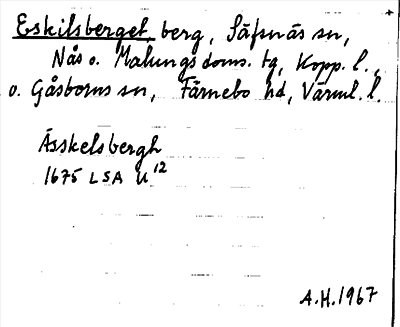 Eskilsberget, berg, Säfsnäs sn,
Nås o. Malungs doms. tg, Kopp. l.
o. Gåsborns sn, Färnebo hd, Värml. l.
Ässkelsbergh
1675 LSA U 12
A.H. 1967